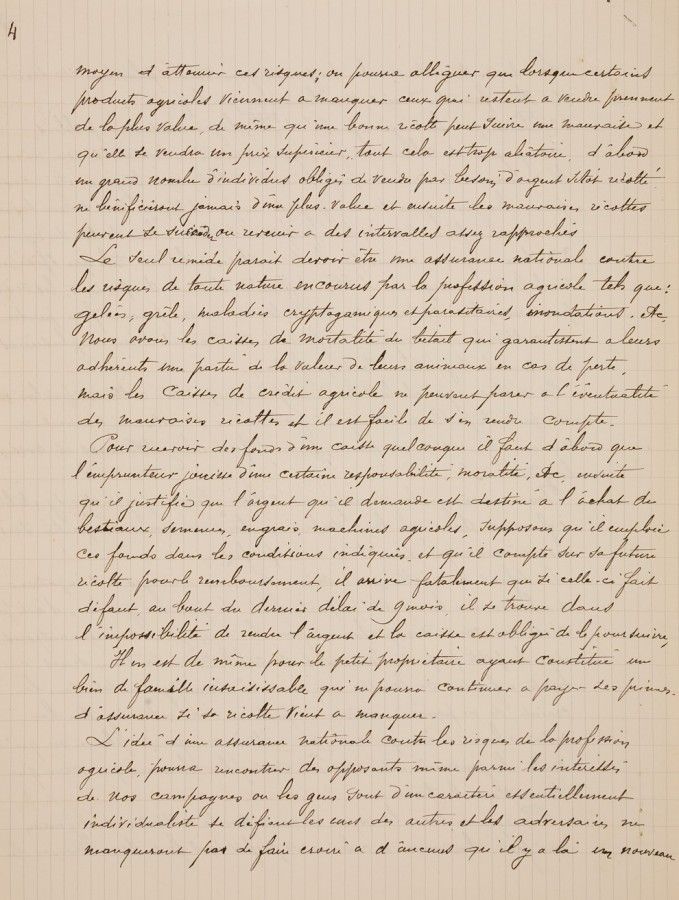 4
moyen d'attenuir ces risques; on pourra alléguer que lorsque certains
produits agricoles viennent a manquer ceux qui restent a vendre prennent
de la plus value, de même qu'une bonne récolte peut suivre une mauvaise et
qu'elle se vendra un prix supérieur, tout cela est trop aléatoire, d'abord
un grand nombre d'individus obligés de vendre par besoin d'argent sitôt récolté
ne bénificiront jamais d'une plus-value et ensuite les mauvaises récoltes
peuvent se succeder ou revenir a des intervalles assez rapprochés
Le seul remède parait devoir être une assurance nationale contre
les risques de toute nature encourus par la profession agricole tels que:
gelées, grêle, maladies cryptogamiques et parasitaires, inondations. etc.
Nous avons les caisses de mortalité du betail qui garantissent a leurs
adhérents une partie de la valeur de leurs animaux en cas de perte,
mais les Caisses de crédit agricole ne peuvent parer a l'éventualité
des mauvaises récoltes et il est facile de s'en rendre compte.
Pour recevoir des fonds d'une caisse quelconque il faut d'abord que
l'emprunteur jouisse d'une certaine responsabilité, moralité, etc, ensuite
qu'il justifie que l'argent qu'il demande est destiné a l'achat du
bestiaux, semences, engrais, machines agricoles, supposons qu'il emploie
ces fonds dans les conditions indiquées et qu'il compte sur sa future
récolte pour le remboursement, il arrive fatalement que si celle-ci fait
défaut au bout du dernier délai de 9 mois il se trouve dans
l'impossibilité de rendre l'argent et la caisse est obligée de le poursuivre,
Il en est de même pour le petit propriétaire ayant constitué un
bien de famille insaisissable qui ne pourra continuer a payer ses primes
d'assurance si sa récolte vient a manquer.
L'idée d'une assurance nationale contre les risques de la profession
agricole, pourra rencontrer des opposants même parmi les interessés
de nos campagnes ou les gens sont d'un caractère essentiellement
individualiste se défient les uns des autres et les adversaires ne
manqueront pas de faire croire a d'aucuns qu'il y a là un nouveau